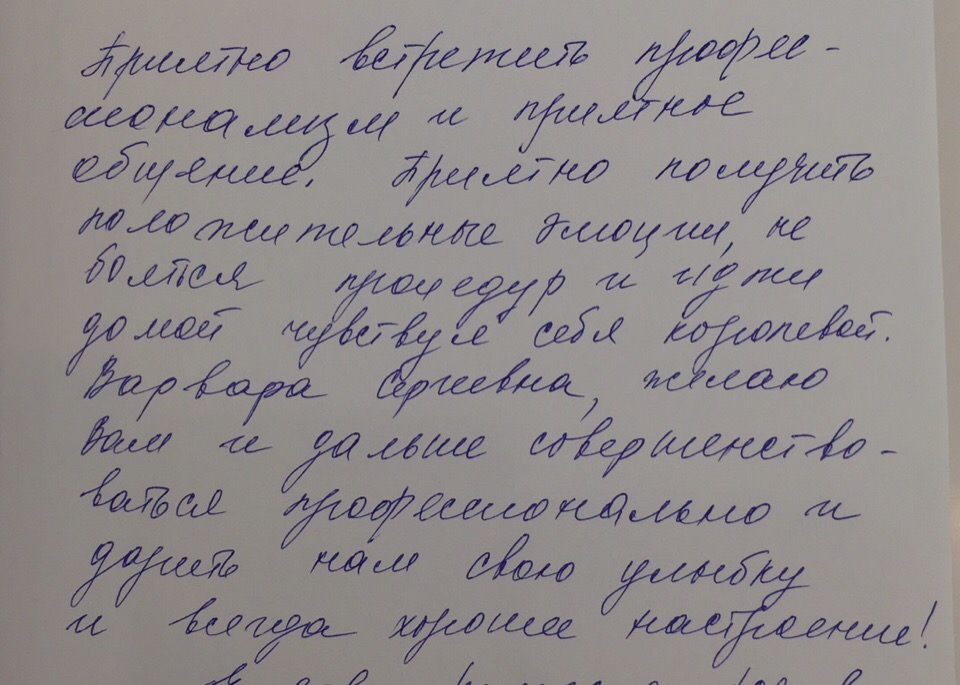 Приятно встретить профес-
сионализм и приятное
общение. Приятно получить
положительные эмоции, не
боятся процедур и идти
домой чувствуя себя королевой.
Варвара Сергеевна, желаю
Вам и дальше совершенство-
ваться профессионально и
дарить нам свою улыбку
и всегда хорошее настроение!